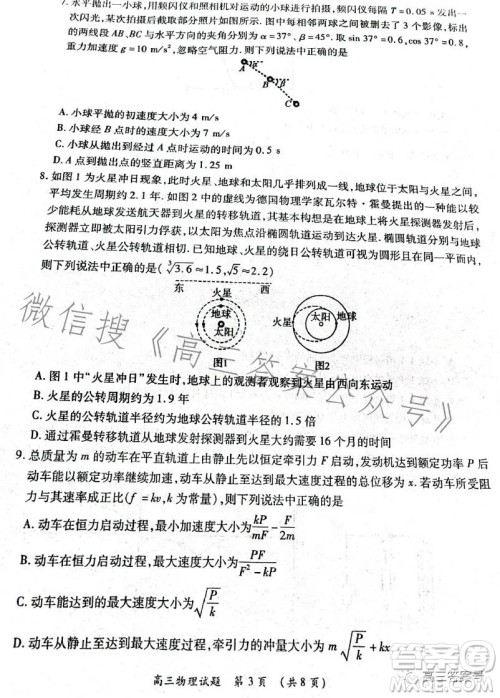 7. 水平抛出一小球，用频闪仪和照相机对运动的小球进行拍摄，频闪仪每隔 T=0.05 s 发出一
次闪光，某次拍摄后截取部分频闪照片如图所示，图中相邻两球之间被删去了 3 个影像，标出
的两线段 AB、BC 与水平方向的夹角分别为 α=37°、β=45°。取 sin 37°=0.6，cos 37°=0.8，
重力加速度 g=10 m/s²，忽略空气阻力。则下列说法中正确的是
A
α
B
β
C
A. 小球平抛的初速度大小为 4 m/s
B. 小球经 B 点时的速度大小为 7 m/s
C. 小球从抛出到运动至 A 点的时间为 0.5 s
D. 抛出点与 A 点的竖直高度为 1.25 m
8. 如图 1 为火星冲日现象，此时火星、地球和太阳几乎排列成一线，地球位于太阳与火星之间，
平均发生周期约 2.1 年。如图 2 中的虚线为德国物理学家瓦尔特·霍曼提出的一条相对节
能的从地球发送航天器到火星的转移轨道，该转移轨道为从地球上将火星探测器发射后，
探测器便开始以太阳为焦点沿椭圆轨道运动到达火星。椭圆轨道分别与地球
公转轨道、火星公转轨道相切。已知火星、地球的绕日公转轨道可视为圆形且几乎共面，
则下列说法中正确的是（∛3.6≈1.5，√5≈2.2）
东 西
火星
地球
太阳
图1
火星
地球
太阳
图2
A. 图 1 中“火星冲日”发生时，地球上的观测者观察到火星由西向东运动
B. 火星的公转周期约为 1.9 年
C. 火星的公转轨道半径约为地球公转轨道半径的 1.5 倍
D. 通过霍曼转移轨道从地球发射探测器到火星大约需要 16 个月的时间
9. 总质量为 m 的动车在平直轨道上由静止先以恒定牵引力 F 启动，发动机达到额定功率 P 后
动车的功率保持不变，动车从静止至达到最大速度经过的总位移为 x。若动车所受
的阻力与速度成正比（f=kv，k 为常量），下列说法正确的是
A. 动车在恒力启动过程，加速度大小为 kP/mF − F/2m
B. 动车在恒力启动过程，最大速度大小为 PF/(F²−kP)
C. 动车能达到的最大速度大小为 √(P/k)
D. 动车从静止至达到最大速度，牵引力的冲量大小为 m√(P/k)+kx
高三物理试题 第 3 页 （共 8 页）
微信搜《高三答案公众号》